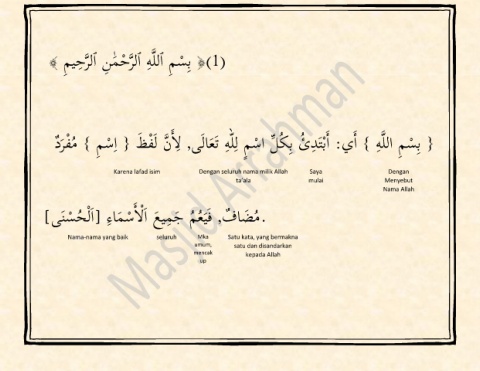 (1)﴿ بِسْمِ ٱللَّهِ ٱلرَّحْمَٰنِ ٱلرَّحِيمِ ﴾
{ بِسْمِ اللَّهِ } أَي: أَبْتَدِئُ بِكُلِّ اسْمٍ لِلَّهِ تَعَالَى, لِأَنَّ لَفْظَ { اِسْمِ } مُفْرَدٌ
Dengan Menyebut Nama Allah
Saya mulai
Dengan seluruh nama milik Allah ta'ala
Karena lafad isim
مُضَافٌ, فَيَعُمُّ جَمِيعَ الْأَسْمَاءِ [اَلْحُسْنَى].
Satu kata, yang bermakna satu dan disandarkan kepada Allah
Mka amum, mencak up
seluruh
Nama-nama yang baik
Masjid Arrahman